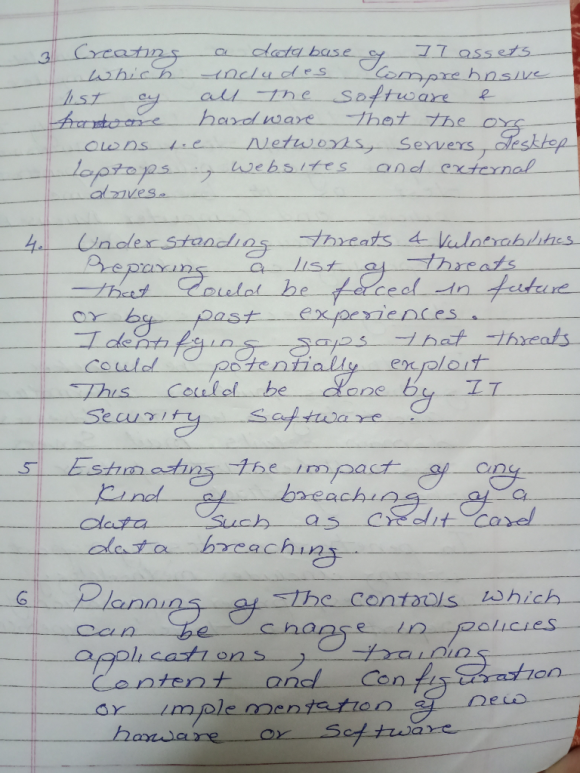 3 Creating a database of IT assets
which includes Comprehnsive
list of all the software &
hardware hardware that the org
owns i.e Networks, Servers, desktop
laptops, websites and external
drives.
4. Understanding threats & Vulnerabilities
Preparing a list of threats
that Could be faced in future
or by past experiences.
Identifying gaps that threats
could potentially exploit
This Could be done by IT
Security Software.
5 Estimating the impact of any
Kind of breaching of a
data Such as Credit Card
data breaching.
6 Planning of the controls which
can be change in policies
applications, training
Content and Configuration
or implementation of new
harware or Software